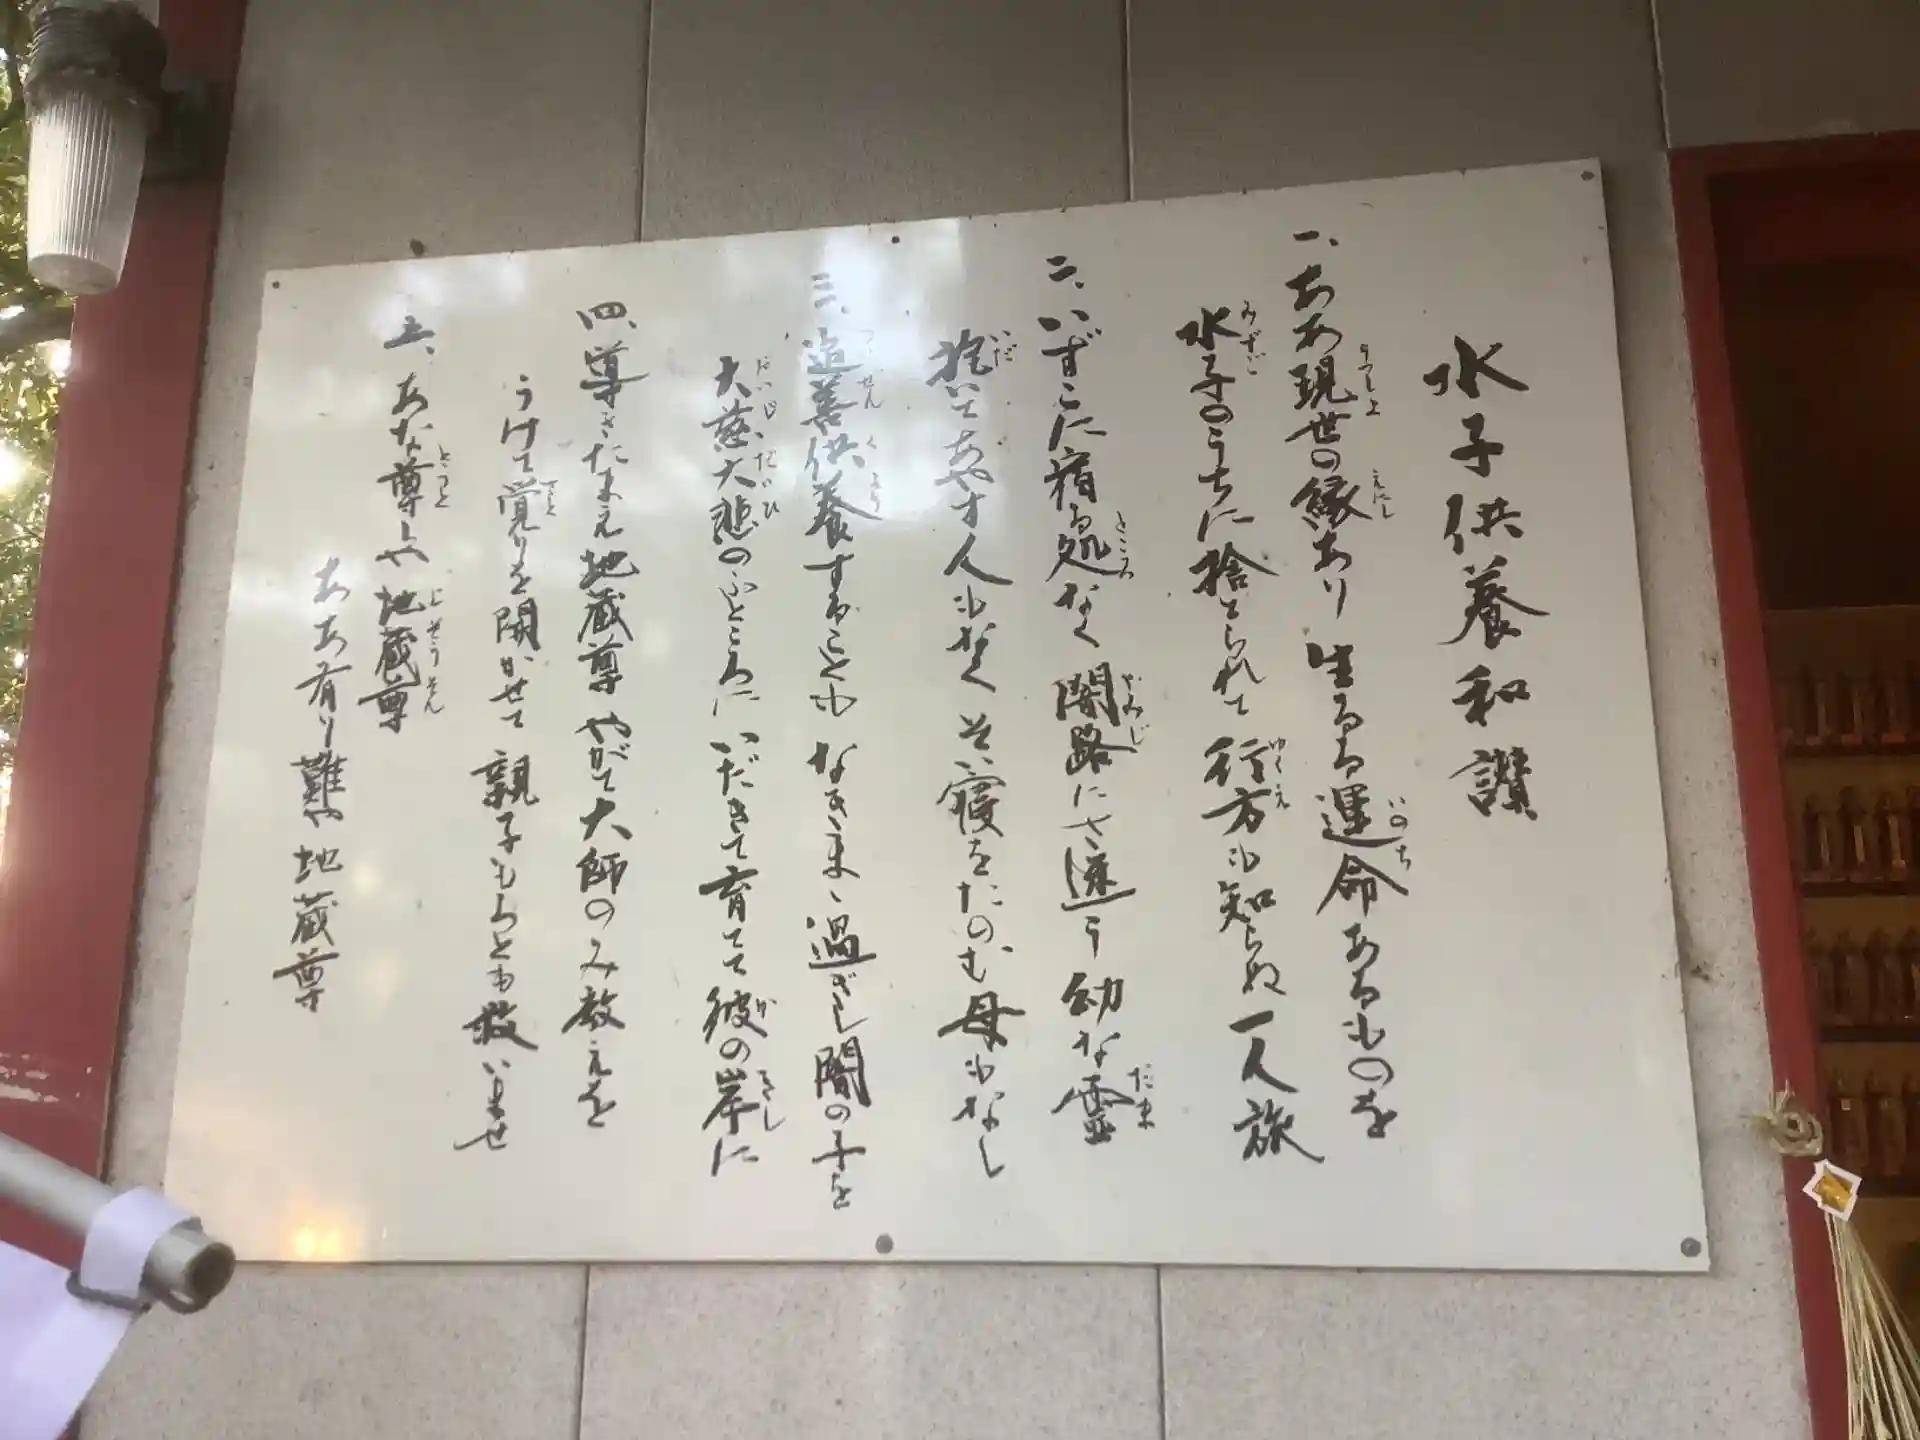 水子供養和讃
一、ああ現世の縁あり 生るる運命あるものを
水子のうちに捨られて 行方も知らぬ一人旅
二、いずこに宿る処なく 闇路にさ迷う幼な霊
抱いてあやす人もなく そい寝をたのむ母もなし
三、追善供養することも なきまゝ過ぎし闇の子を
大慈大悲のふところに いだきて育てて彼の岸に
四、導きたまえ地蔵尊 やがて大師のみ教えを
うけて覚りを開かせて 親子もろとも救いませ
五、あな尊しや 地蔵尊
ああ有り難や 地蔵尊